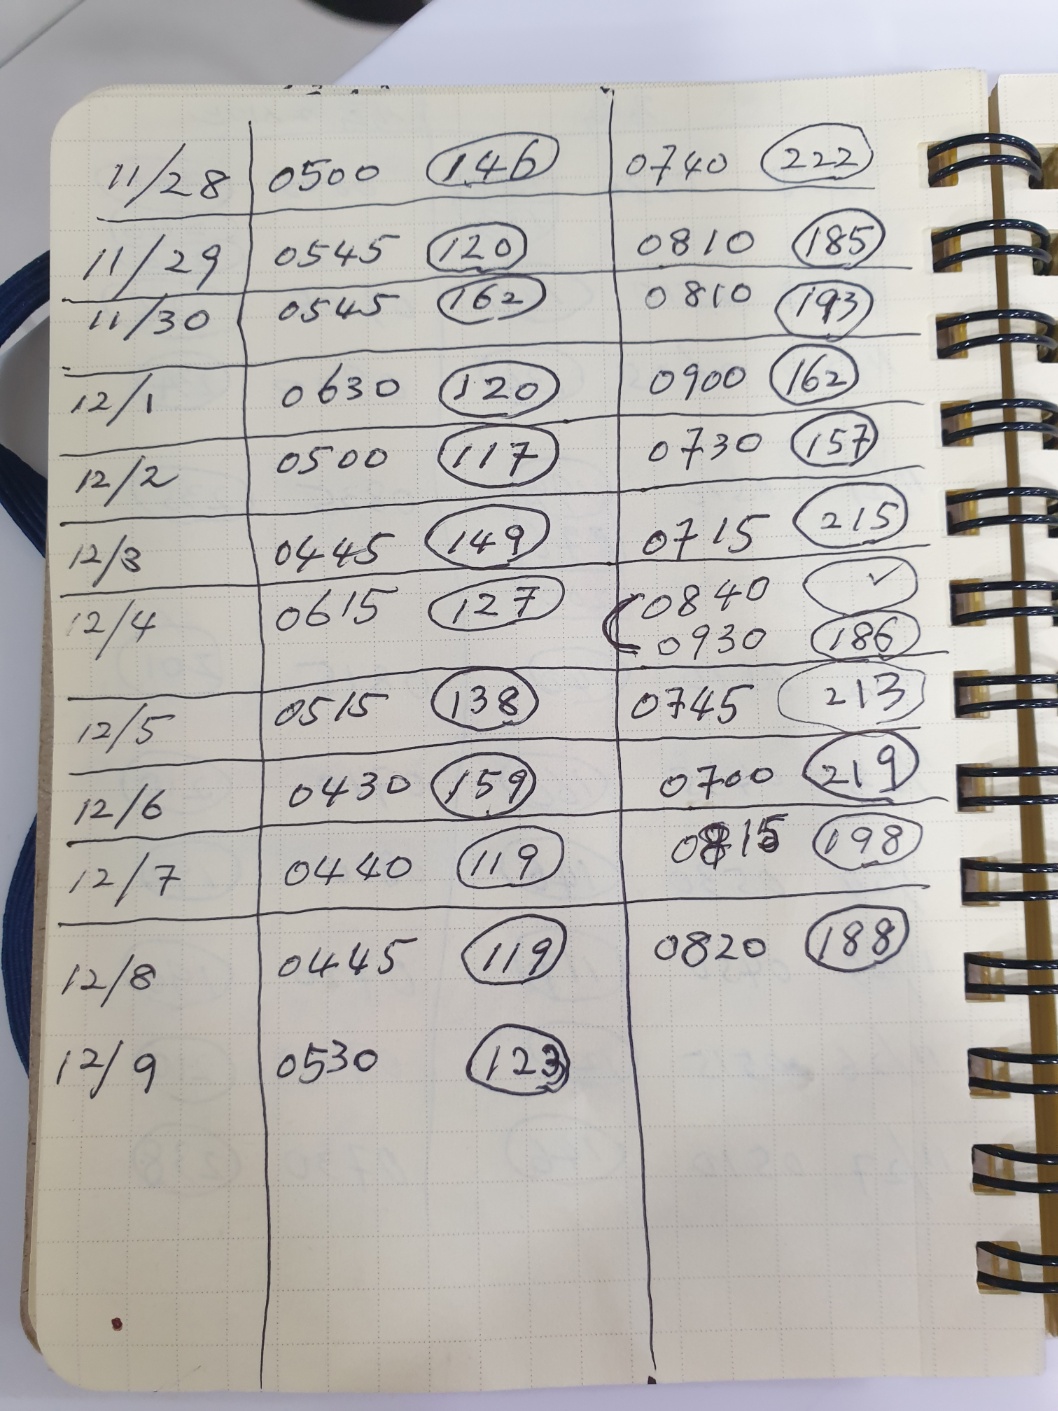 11/28 0500 146 0740 222
11/29 0545 120 0810 185
11/30 0545 162 0810 193
12/1 0630 120 0900 162
12/2 0500 117 0730 157
12/3 0445 149 0715 215
12/4 0615 127 0840 ✓
0930 186
12/5 0515 138 0745 213
12/6 0430 159 0700 219
12/7 0440 119 0815 198
12/8 0445 119 0820 188
12/9 0530 123